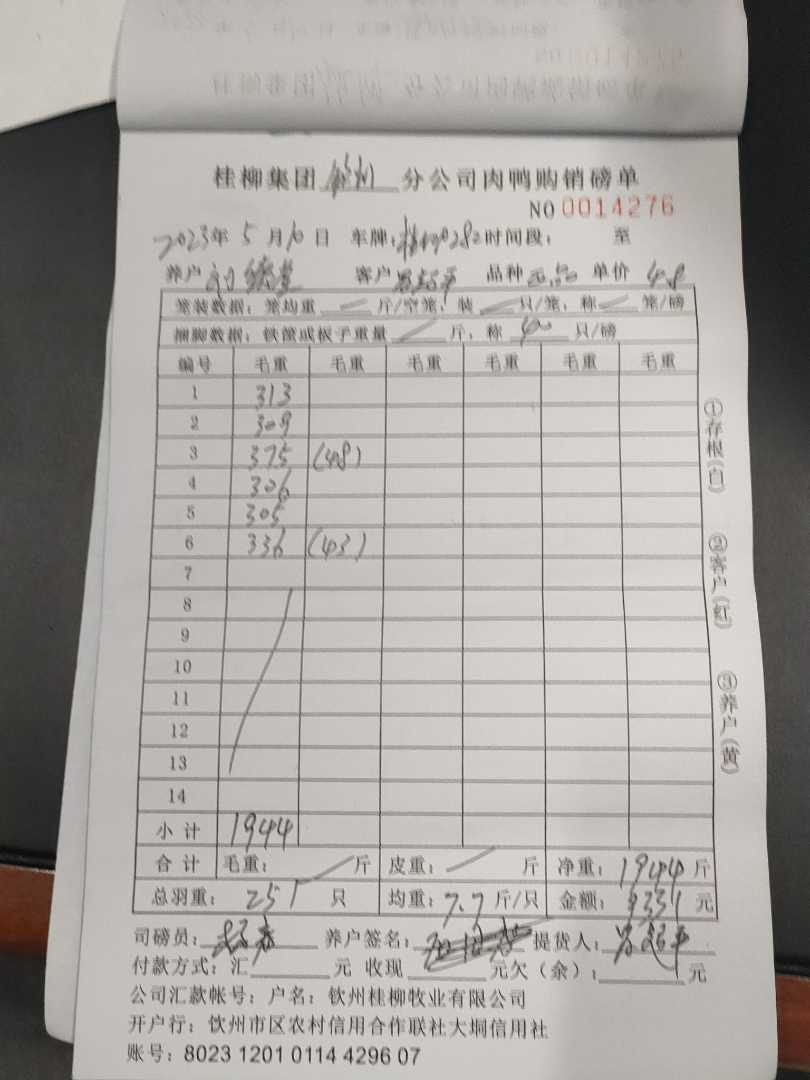 桂柳集团钦州分公司肉鸭购销磅单
NO 0014276
2023年 5月10日 车牌:桂 0282 时间段: 至
养户 客户 超平 品种 单价 4.8
笼装数据:笼均重 斤/空笼,装 只/笼,称 笼/磅
捆脚数据:铁筐或板子重量 斤,称 40 只/磅
编号 毛重 毛重 毛重 毛重 毛重 毛重
1 313
2 309
3 375 (48)
4 306
5 305
6 336 (43)
7
8
9
10
11
12
13
14
小计 1944
合计 毛重: 斤 皮重: 斤 净重: 1944 斤
总羽重: 251 只 均重: 7.7 斤/只 金额: 9331 元
司磅员: 养户签名: 提货人: 超平
付款方式:汇 元 收现 元欠(余): 元
公司汇款帐号:户名:钦州桂柳牧业有限公司
开户行:钦州市区农村信用合作联社大垌信用社
账号:8023 1201 0114 4296 07
①存根(白) ②客户(红) ③养户(黄)